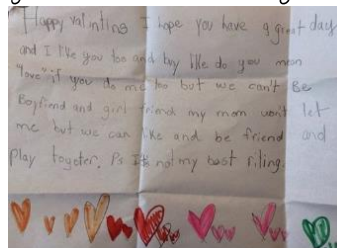 Happy valinting I hope you have a great day
and I like you too and buy like do you mean
"love" if you do me too but we can't Be
Boyfiend and girl friend my mom won't let
me but we can like and be friend and
Play toygter. Ps It's not my best riting.